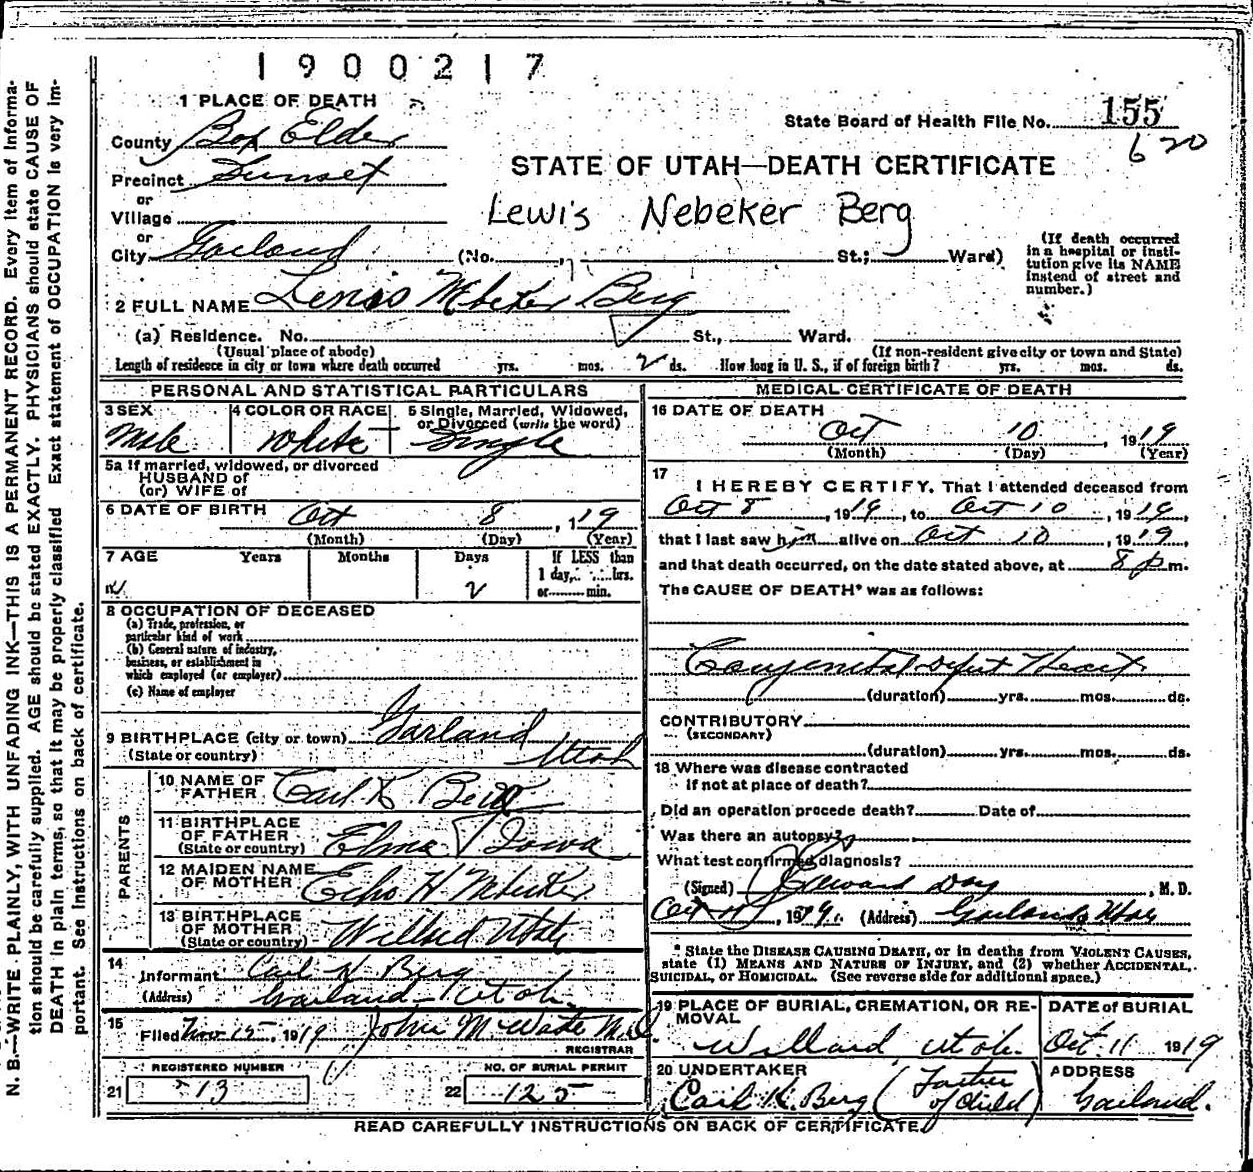 1900217
1 PLACE OF DEATH
State Board of Health File No. 155
620
County Box Elder
STATE OF UTAH—DEATH CERTIFICATE
Precinct Sunset
or
Village
Lewis Nebeker Berg
or
City Garland (No. St.; Ward)
(If death occurred in a hospital or insti-
tution give its NAME
instead of street and
number.)
2 FULL NAME Lewis Nebeker Berg
(a) Residence. No. St., Ward.
(Usual place of abode) (If non-resident give city or town and State)
Length of residence in city or town where death occurred yrs. mos. 2 ds. How long in U. S., if of foreign birth? yrs. mos. ds.
PERSONAL AND STATISTICAL PARTICULARS
3 SEX 4 COLOR OR RACE 5 Single, Married, Widowed,
or Divorced (write the word)
Male White Single
5a If married, widowed, or divorced
HUSBAND of
(or) WIFE of
6 DATE OF BIRTH Oct 8, 119
(Month) (Day) (Year)
7 AGE Years Months Days If LESS than
1 day, hrs.
2 or min.
8 OCCUPATION OF DECEASED
(a) Trade, profession, or
particular kind of work
(b) General nature of industry,
business, or establishment in
which employed (or employer)
(c) Name of employer
9 BIRTHPLACE (city or town) Garland
(State or country) Utah
PARENTS
10 NAME OF
FATHER Carl K Berg
11 BIRTHPLACE
OF FATHER
(State or country) Elma Iowa
12 MAIDEN NAME
OF MOTHER Echo H Nebeker
13 BIRTHPLACE
OF MOTHER
(State or country) Willard Utah
14
Informant Carl K Berg
(Address) Garland Utah.
15
Filed Nov 15, 1919 John M. Wade M.D
REGISTRAR
REGISTERED NUMBER NO. OF BURIAL PERMIT
21 13 22 125
MEDICAL CERTIFICATE OF DEATH
16 DATE OF DEATH
Oct 10, 1919
(Month) (Day) (Year)
17
I HEREBY CERTIFY, That I attended deceased from
Oct 8, 1919, to Oct 10, 1919,
that I last saw him alive on Oct 10, 1919,
and that death occurred, on the date stated above, at 8 p m.
The CAUSE OF DEATH* was as follows:
Congenital Defect Heart
(duration) yrs. mos. ds.
CONTRIBUTORY
(SECONDARY)
(duration) yrs. mos. ds.
18 Where was disease contracted
if not at place of death?
Did an operation procede death? Date of
Was there an autopsy?
What test confirmed diagnosis?
(Signed) Day, M. D.
Oct 11, 1919. (Address) Garland Utah
* State the DISEASE CAUSING DEATH, or in deaths from VIOLENT CAUSES,
state (1) MEANS AND NATURE OF INJURY, and (2) whether ACCIDENTAL,
SUICIDAL, or HOMICIDAL. (See reverse side for additional space.)
19 PLACE OF BURIAL, CREMATION, OR RE-
MOVAL
DATE OF BURIAL
Willard Utah. Oct. 11 1919
20 UNDERTAKER ADDRESS
Carl K. Berg (Father
of child) Garland.
READ CAREFULLY INSTRUCTIONS ON BACK OF CERTIFICATE.
N. B.—WRITE PLAINLY, WITH UNFADING INK—THIS IS A PERMANENT RECORD. Every item of informa-
tion should be carefully supplied. AGE should be stated EXACTLY. PHYSICIANS should state CAUSE OF
DEATH in plain terms, so that it may be properly classified Exact statement of OCCUPATION is very im-
portant. See Instructions on back of certificate.